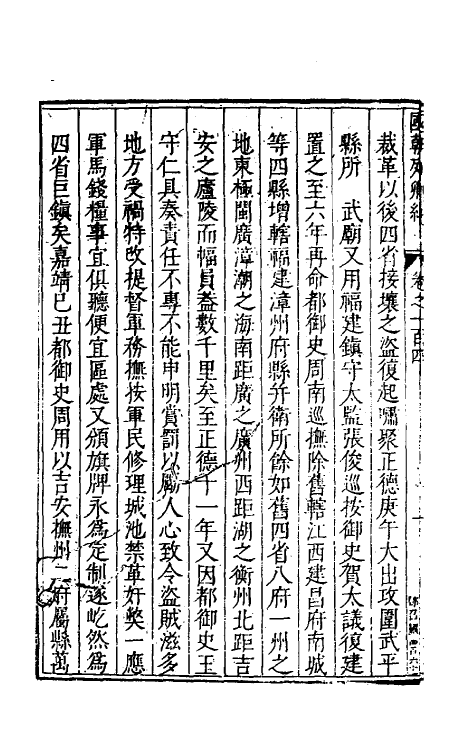 國朝列卿紀 卷之一百四
裁革以後四省接壤之盜復起嘯聚正德庚午大出攻圍武平
縣所 武廟又用福建鎮守太監張俊巡按御史賀太議復建
置之至六年再命都御史周南巡撫除舊轄江西建昌府南城
等四縣增轄福建漳州府縣并衛所餘如舊四省八府一州之
地東極閩廣漳潮之海南距廣之廣州西距湖之衡州北距吉
安之廬陵而幅員蓋數千里矣至正德十一年又因都御史王
守仁具奏責任不專不能申明賞罰以勵人心致令盜賊滋多
地方受禍特改提督軍務撫按軍民修理城池禁革奸獘一應
軍馬錢糧事宜俱聽便宜區處又頒旗牌永爲定制遂屹然爲
四省巨鎮矣嘉靖己丑都御史周用以吉安撫州二府屬縣萬